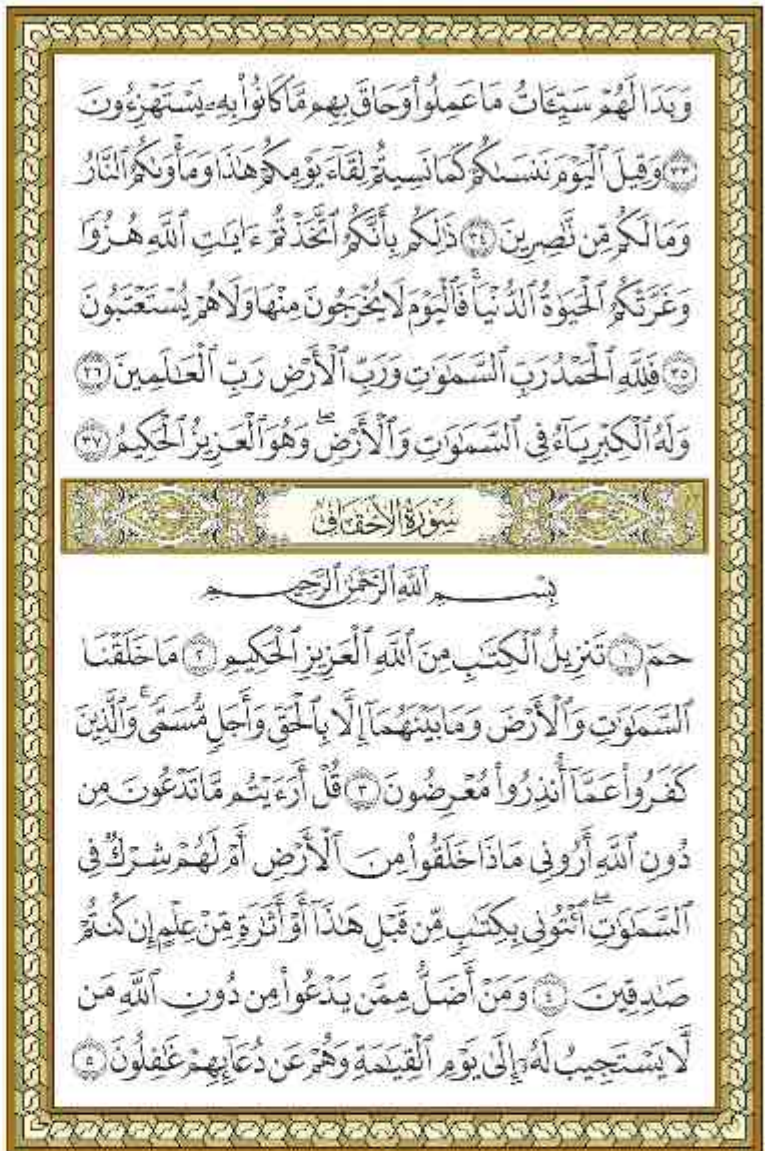 وَبَدَا لَهُمْ سَيِّـَٔاتُ مَا عَمِلُوا۟ وَحَاقَ بِهِم مَّا كَانُوا۟ بِهِۦ يَسْتَهْزِءُونَ
﴿٣٣﴾ وَقِيلَ ٱلْيَوْمَ نَنسَىٰكُمْ كَمَا نَسِيتُمْ لِقَآءَ يَوْمِكُمْ هَـٰذَا وَمَأْوَىٰكُمُ ٱلنَّارُ
وَمَا لَكُم مِّن نَّـٰصِرِينَ ﴿٣٤﴾ ذَٰلِكُم بِأَنَّكُمُ ٱتَّخَذْتُمْ ءَايَـٰتِ ٱللَّهِ هُزُوًا
وَغَرَّتْكُمُ ٱلْحَيَوٰةُ ٱلدُّنْيَا ۚ فَٱلْيَوْمَ لَا يُخْرَجُونَ مِنْهَا وَلَا هُمْ يُسْتَعْتَبُونَ
﴿٣٥﴾ فَلِلَّهِ ٱلْحَمْدُ رَبِّ ٱلسَّمَـٰوَٰتِ وَرَبِّ ٱلْأَرْضِ رَبِّ ٱلْعَـٰلَمِينَ ﴿٣٦﴾
وَلَهُ ٱلْكِبْرِيَآءُ فِى ٱلسَّمَـٰوَٰتِ وَٱلْأَرْضِ ۖ وَهُوَ ٱلْعَزِيزُ ٱلْحَكِيمُ ﴿٣٧﴾
سُورَةُ الأَحْقَافِ
بِسْمِ ٱللَّهِ ٱلرَّحْمَـٰنِ ٱلرَّحِيمِ
حمٓ ﴿١﴾ تَنزِيلُ ٱلْكِتَـٰبِ مِنَ ٱللَّهِ ٱلْعَزِيزِ ٱلْحَكِيمِ ﴿٢﴾ مَا خَلَقْنَا
ٱلسَّمَـٰوَٰتِ وَٱلْأَرْضَ وَمَا بَيْنَهُمَآ إِلَّا بِٱلْحَقِّ وَأَجَلٍ مُّسَمًّى ۚ وَٱلَّذِينَ
كَفَرُوا۟ عَمَّآ أُنذِرُوا۟ مُعْرِضُونَ ﴿٣﴾ قُلْ أَرَءَيْتُم مَّا تَدْعُونَ مِن
دُونِ ٱللَّهِ أَرُونِى مَاذَا خَلَقُوا۟ مِنَ ٱلْأَرْضِ أَمْ لَهُمْ شِرْكٌ فِى
ٱلسَّمَـٰوَٰتِ ۖ ٱئْتُونِى بِكِتَـٰبٍ مِّن قَبْلِ هَـٰذَآ أَوْ أَثَـٰرَةٍ مِّنْ عِلْمٍ إِن كُنتُمْ
صَـٰدِقِينَ ﴿٤﴾ وَمَنْ أَضَلُّ مِمَّن يَدْعُوا۟ مِن دُونِ ٱللَّهِ مَن
لَّا يَسْتَجِيبُ لَهُۥٓ إِلَىٰ يَوْمِ ٱلْقِيَـٰمَةِ وَهُمْ عَن دُعَآئِهِمْ غَـٰفِلُونَ ﴿٥﴾